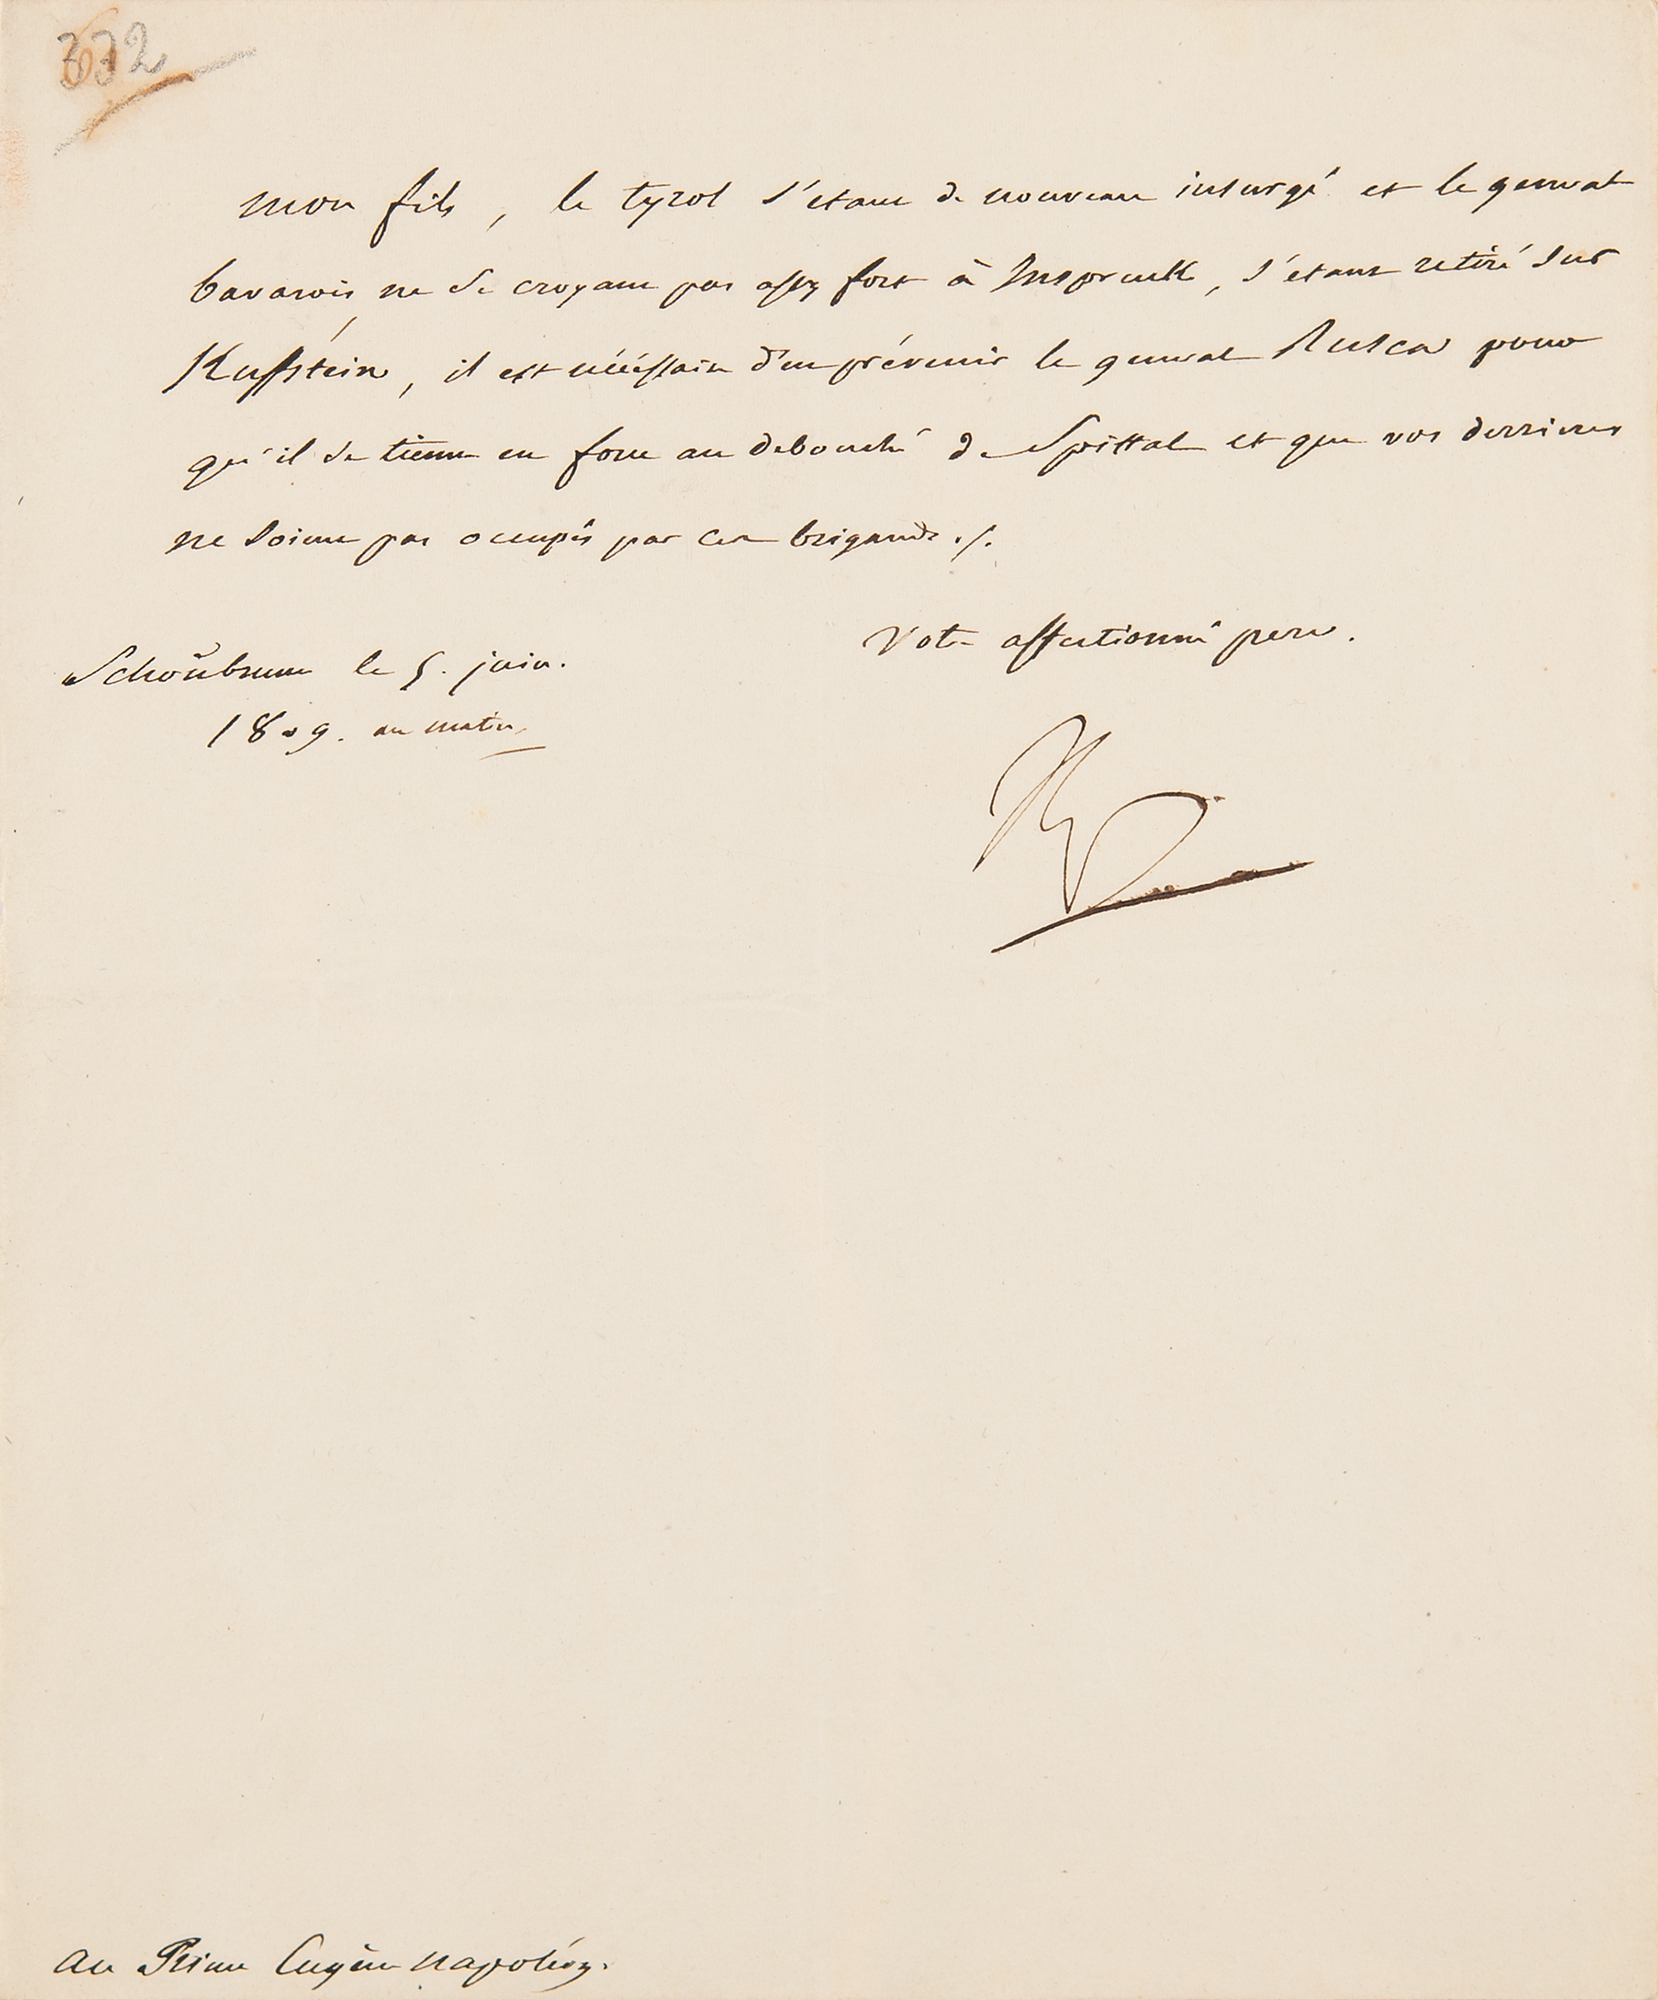 332
mon fils, le tyrol s'étant de nouveau insurgé et le general
bavarois ne se croyant pas assez fort à Inspruck, s'étant retiré sur
Kuffstein, il est nécéssaire d'en prévenir le general Rusca pour
qu'il se tienne en force au debouché de Spittal et que vos derrieres
ne soient pas occupés par ces brigands ./.
Votre affectionné pere.
Schönbrunn le 5. juin.
1809. au matin
Np
Au Prince Eugène napoléon.